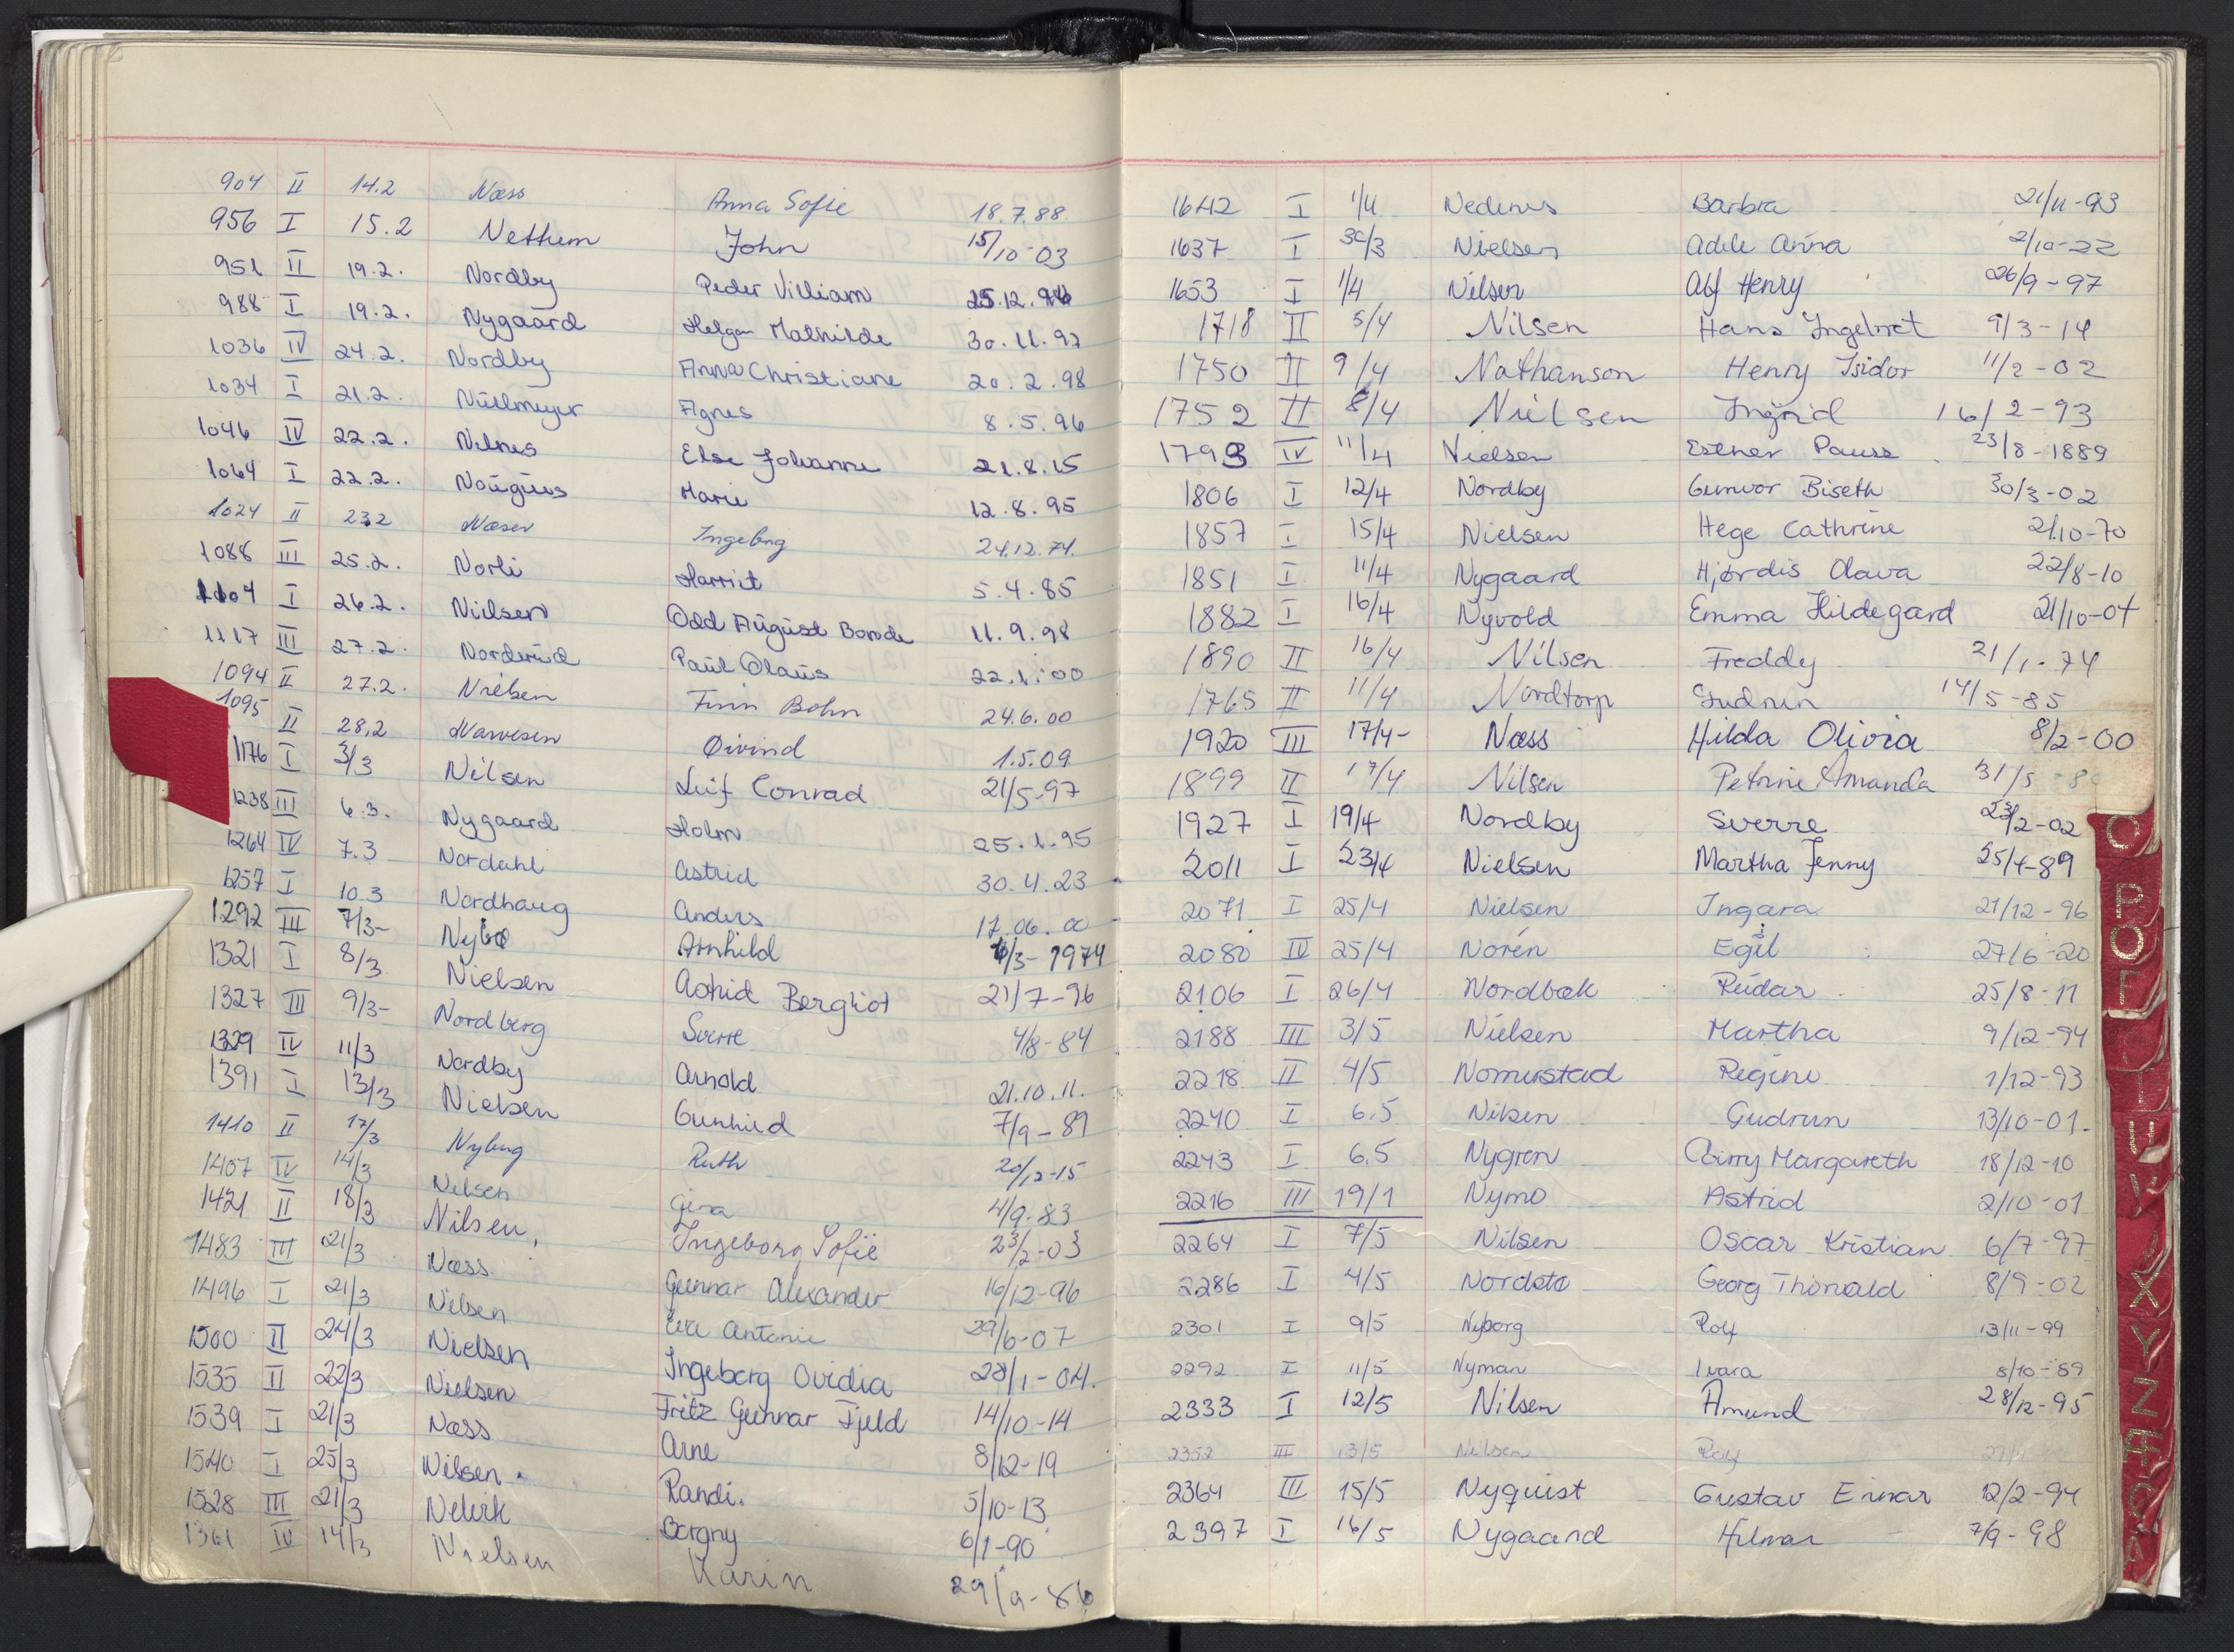 904 II 14.2 Næss Anna Sofie 18.7.88
956 I 15.2 Nethum John 15/10-03
951 II 19.2. Nordby Peder Villiam 25.12.
988 I 19.2. Nygaard Helga Mathilde 30.11.97
1036 IV 24.2. Nordby Anna Christiane 20.2.98
1034 I 21.2. Agnes 8.5.96
1046 IV 22.2. Else Johanne 21.8.15
1064 I 22.2. Marie 12.8.95
1024 II 23.2 Ingeborg 24.12.74.
1088 III 25.2. Norli Harriet 5.4.85
1104 I 26.2. Nielsen Odd August 11.9.98
1117 III 27.2. Norderud Paul Olaus 22.1.00
1094 II 27.2. Nielsen Finn Bohn 24.6.00
1095 II 28.2 Narvesen Øivind 1.5.09
1176 I 3/3 Nilsen Leif Conrad 21/5-97
1238 III 6.3. Nygaard Holm 25.1.95
1264 IV 7.3 Nordahl Astrid 30.4.23
1257 I 10.3 Nordhaug Anders 17.06.00
1292 III 7/3- Nybø Arnhild /3-1974
1321 I 8/3 Nielsen Astrid Bergliot 21/7-96
1327 III 9/3- Nordberg Sverre 4/8-84
1329 IV 11/3 Nordby Arnold 21.10.11.
1391 I 13/3 Nielsen Gunhild 7/9-89
1410 II 17/3 Nyberg Ruth 20/12-15
1407 IV 14/3 Nilsen Gina 4/9-83
1421 II 18/3 Nilsen, Ingeborg Sofie 23/2-03
1483 III 21/3 Næss Gunnar Alexander 16/12-96
1496 I 21/3 Nilsen Eva Antonie 29/6-07
1500 II 24/3 Nielsen Ingeborg Ovidia 28/1-04.
1535 II 22/3 Nielsen Fritz Gunnar Fjeld 14/10-14
1539 I 21/3 Næss Arne 8/12-19
1540 I 25/3 Nilsen Randi. 5/10-13
1528 III 21/3 Borgny 6/1-90
1361 IV 14/3 Nielsen Karin 29/9-86
1642 I 1/4 Nedenes Barbra 21/11-93
1637 I 30/3 Nielsen Adele Anna 2/10-22
1653 I 1/4 Nilsen Alf Henry 26/9-97
1718 II 5/4 Nilsen Hans Ingebret 9/3-14
1750 II 9/4 Nathanson Henry Isidor 11/2-02
1752 II 8/4 Nielsen Ingrid 16/2-93
1793 IV 11/4 Nielsen Esther Pauss 23/8-1889
1806 I 12/4 Nordby Gunvor Biseth 30/3-02
1857 I 15/4 Nielsen Hege Cathrine 2/10-70
1851 I 11/4 Nygaard Hjørdis Olava 22/8-10
1882 I 16/4 Nyvold Emma Hildegard 21/10-04
1890 II 16/4 Nilsen Freddy 21/1-74
1765 II 11/4 Nordtorp Gudrun 14/5-85
1920 III 17/4- Næss Hilda Olivia 8/2-00
1899 II 17/4 Nilsen Petrine Amanda 31/5-8
1927 I 19/4 Nordby Sverre 23/2-02
2011 I 23/4 Nielsen Martha Jenny 25/4-89
2071 I 25/4 Nielsen Ingara 21/12-96
2080 IV 25/4 Norén Egil 27/6-20
2106 I 26/4 Nordbæk Reidar 25/8-11
2188 III 3/5 Nielsen Martha 9/12-94
2218 II 4/5 Nomerstad Regine 1/12-93
2240 I 6.5 Nilsen Gudrun 13/10-01.
2243 I 6.5 Nygren Margareth 18/12-10
2216 III 19/1 Nymo Astrid 2/10-01
2264 I 7/5 Nilsen Oscar Kristian 6/7-97
2286 I 4/5 Nordstø Georg Thorvald 8/9-02
2301 I 9/5 Nyborg Rolf 13/11-99
2292 I 11/5 Nyman Ivara 8/10-89
2333 I 12/5 Nilsen Amund 28/12-95
2352 III 13/5 Nilsen Rolf
2364 III 15/5 Nyquist Gustav Einar 12/2-94
2397 I 16/5 Nygaard Hilmar 7/9-98
O
P
X
Y
Z
Æ
Ø